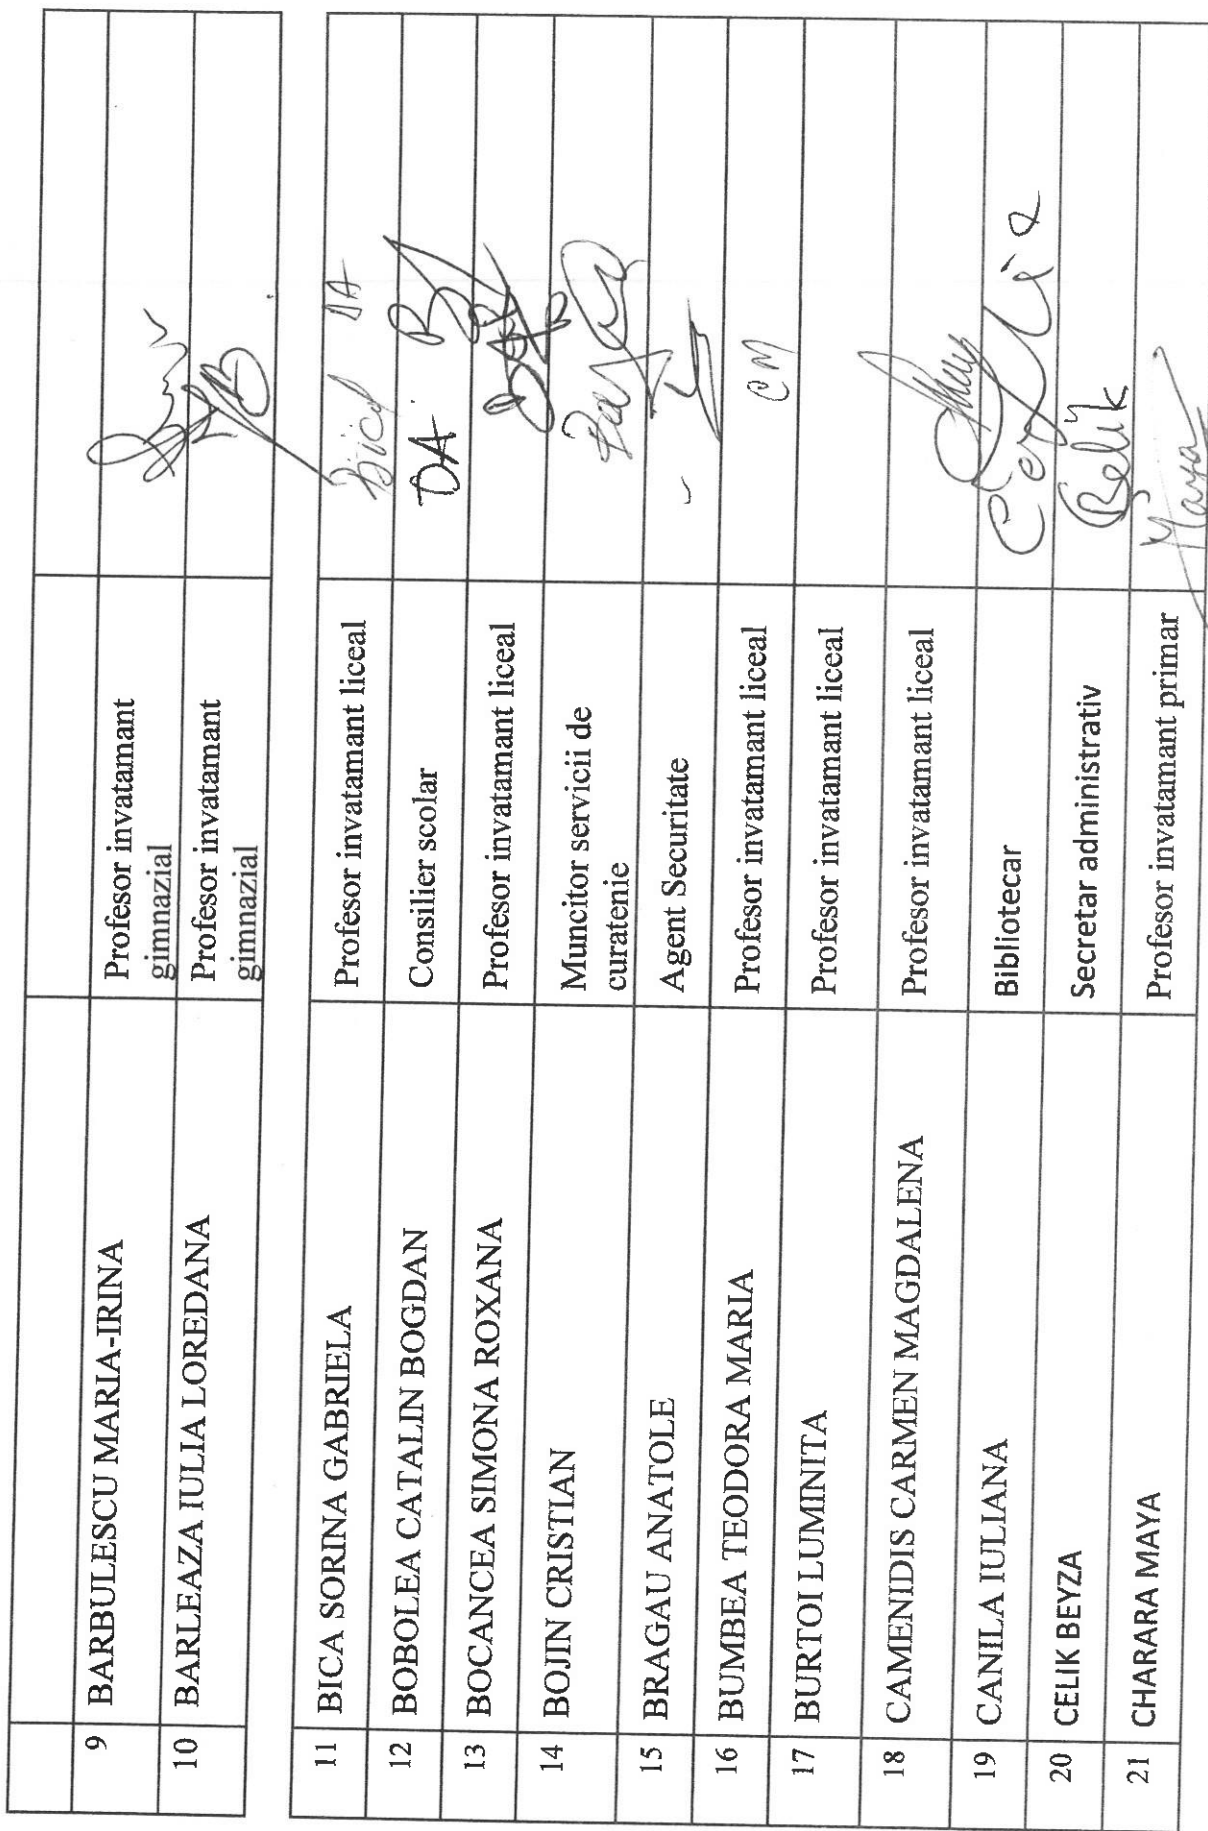 9 BARBULESCU MARIA-IRINA Profesor invatamant
gimnazial
10 BARLEAZA IULIA LOREDANA Profesor invatamant
gimnazial
11 BICA SORINA GABRIELA Profesor invatamant liceal Bică DA
12 BOBOLEA CATALIN BOGDAN Consilier scolar DA
13 BOCANCEA SIMONA ROXANA Profesor invatamant liceal
14 BOJIN CRISTIAN Muncitor servicii de
curatenie
15 BRAGAU ANATOLE Agent Securitate
16 BUMBEA TEODORA MARIA Profesor invatamant liceal CM
17 BURTOI LUMINITA Profesor invatamant liceal
18 CAMENIDIS CARMEN MAGDALENA Profesor invatamant liceal
19 CANILA IULIANA Bibliotecar
20 CELIK BEYZA Secretar administrativ
21 CHARARA MAYA Profesor invatamant primar Maya